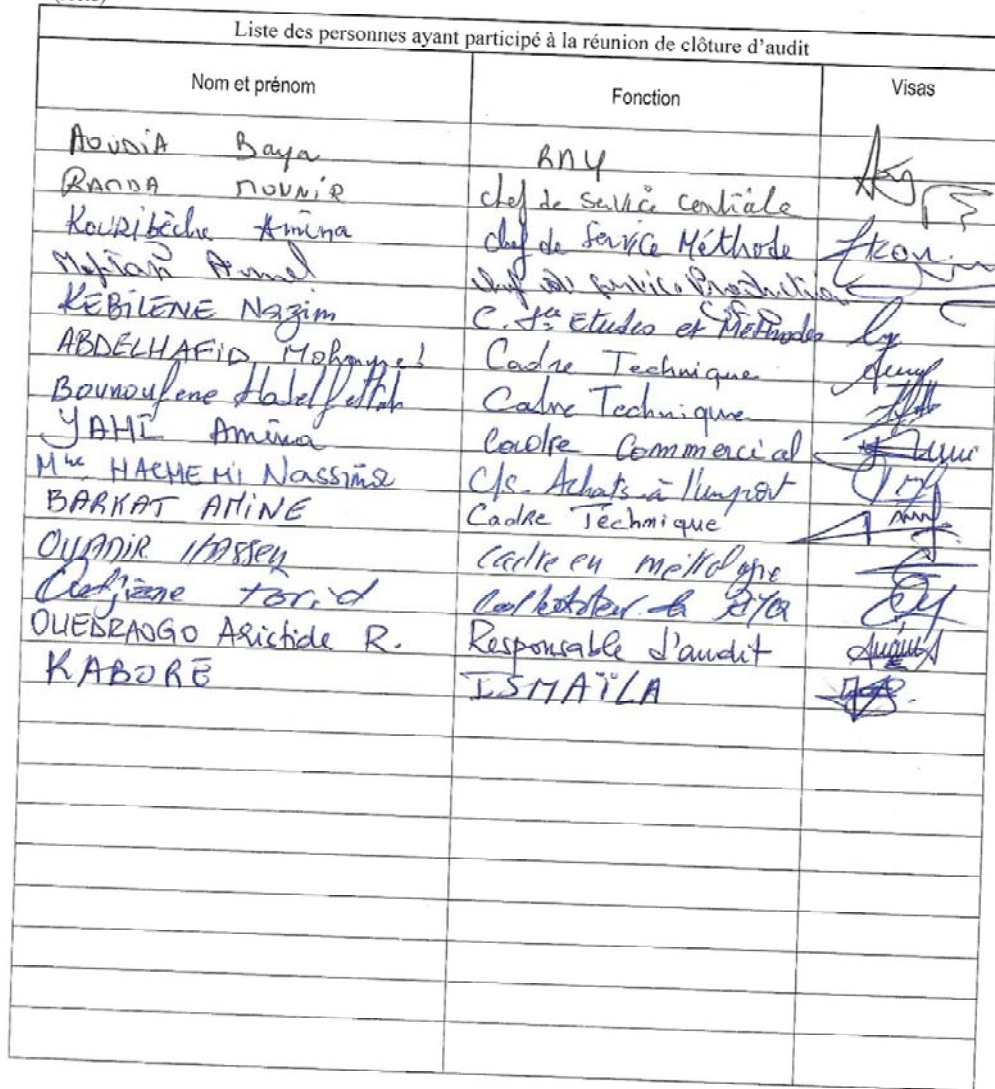 Liste des personnes ayant participé à la réunion de clôture d'audit
Nom et prénom Fonction Visas
AOUDIA Baya RMQ
RAMDA MOUNIR chef de Service Centrale
Kouribèche Amina chef de Service Méthode
Meftah Amel chef de service Production
KEBILENE Nazim C. Sce Etudes et Méthodes
ABDELHAFID Mohamed Cadre Technique
Bounoufene Cadre Technique
YAHI Amina Cadre Commercial
Mme HACHEMI Nassima C/s Achats à l'import
BARKAT AMINE Cadre Technique
OUADIR HASSEN cadre en métrologie
Farid
OUEDRAOGO Aristide R. Responsable d'audit
KABORE ISMAÏLA